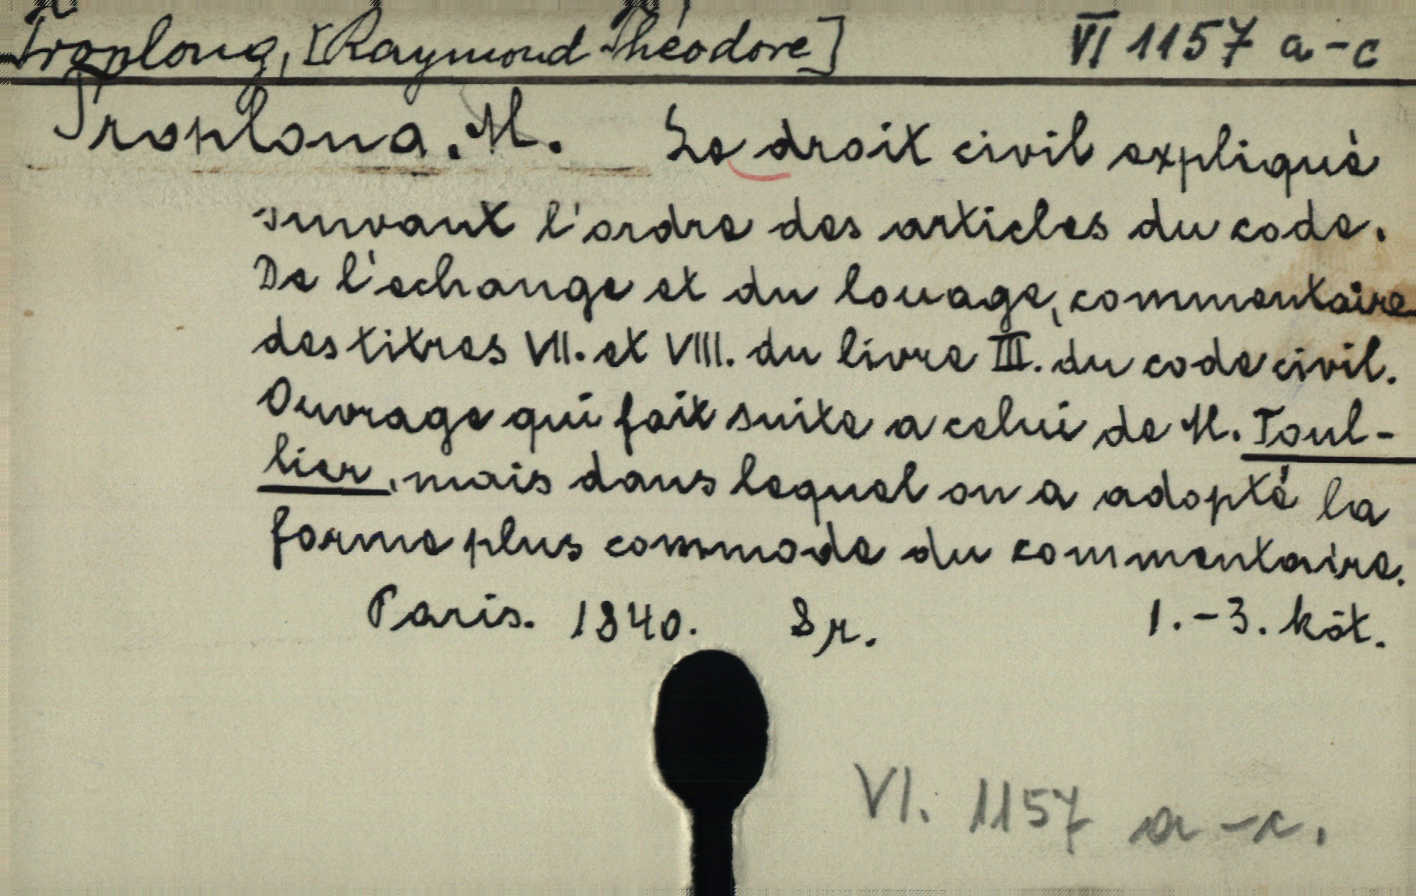 Troplong, [Raymond Théodore] VI 1157 a-c
Troplong. M. Le droit civil expliqué
suivant l'ordre des articles du code.
De l'echange et du louage, commentaire
des titres VII. et VIII. du livre III. du code civil.
Ouvrage qui fait suite a celui de M. Toul-
lier, mais dans lequel on a adopté la
forme plus commode du commentaire.
Paris. 1840. 8r. 1.-3. köt.
VI. 1157 a-c.